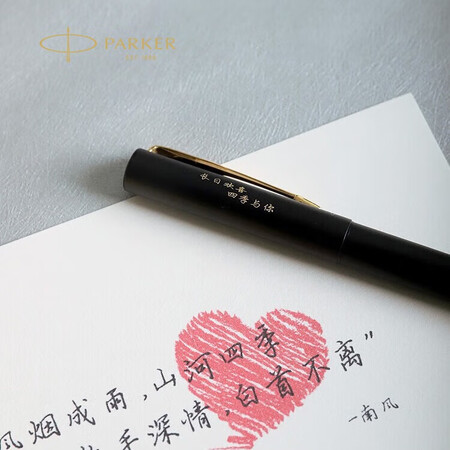 PARKER
长日欢喜
四季与你
风烟成雨,山河四季
手深情,白首不离"
-南风